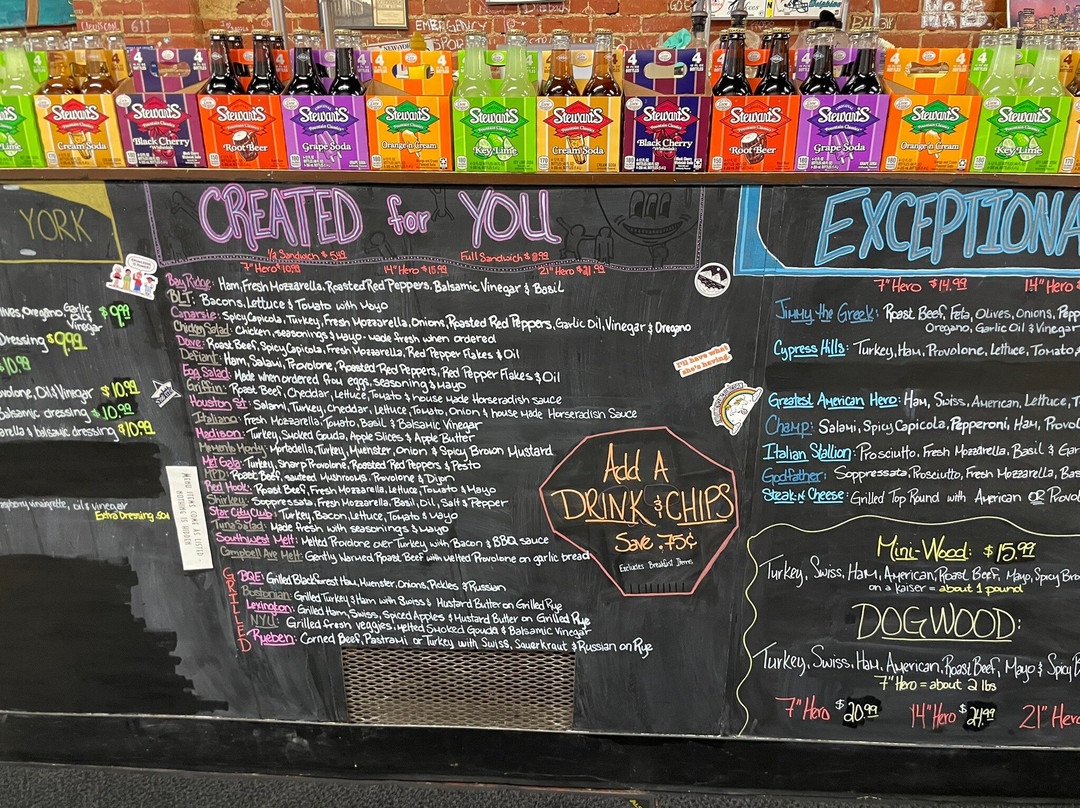 EMERGENCY
STEWART'S
Key Lime
STEWART'S
Cream Soda
STEWART'S
Black Cherry
STEWART'S
Root Beer
STEWART'S
Grape Soda
STEWART'S
Orange n Cream
STEWART'S
Key Lime
STEWART'S
Cream Soda
STEWART'S
Black Cherry
STEWART'S
Root Beer
STEWART'S
Grape Soda
STEWART'S
Orange n Cream
STEWART'S
Key Lime
YORK
Oregano, Garlic
Vinegar $9.99
Dressing $9.99
$10.99
Oil & Vinegar $10.99
balsamic dressing $10.99
& balsamic dressing $10.99
raspberry vinaigrette, oil & vinegar
Extra Dressing .50¢
MENU ITEMS COME AS LISTED
NOTHING IS HIDDEN
CREATED for YOU
1/2 Sandwich Full Sandwich $8.99
7" Hero 10.99 14" Hero $15.99 21" Hero $21.99
Bay Ridge: Ham, Fresh Mozzarella, Roasted Red Peppers, Balsamic Vinegar & Basil
BLT: Bacon, Lettuce & Tomato with Mayo
Canarsie: Spicy Capicola, Turkey, Fresh Mozzarella, Onions, Roasted Red Peppers, Garlic Oil, Vinegar & Oregano
Chicken Salad: Chicken, seasonings & mayo - made fresh when ordered
Dave: Roast Beef, Spicy Capicola, Fresh Mozzarella, Red Pepper Flakes & Oil
Defiant: Ham, Salami, Provolone, Roasted Red Peppers, Red Pepper Flakes & Oil
Egg Salad: Made when ordered from eggs, seasoning & mayo
Griffin: Roast Beef, Cheddar, Lettuce, Tomato & house made Horseradish sauce
Houston St: Salami, Turkey, Cheddar, Lettuce, Tomato, Onion & house made Horseradish Sauce
Italiano: Fresh Mozzarella, Tomato, Basil & Balsamic Vinegar
Madison: Turkey, Smoked Gouda, Apple Slices & Apple Butter
Memento Morty: Mortadella, Turkey, Muenster, Onion & Spicy Brown Mustard
Met Gala: Turkey, Sharp Provolone, Roasted Red Peppers & Pesto
Roast Beef, sauteed Mushrooms, Provolone & Dijon
Red Hook: Roast Beef, Fresh Mozzarella, Lettuce, Tomato & Mayo
Shirley: Soppressata, Fresh Mozzarella, Basil, Oil, Salt & Pepper
Star City Club: Turkey, Bacon, Lettuce, Tomato & mayo
Tuna Salad: Made fresh with seasonings & mayo
Southwest Melt: Melted Provolone over Turkey with Bacon & BBQ sauce
Campbell Ave Melt: Gently Warmed Roast Beef with melted Provolone on garlic bread
GRILLED
BQE: Grilled Blackforest Ham, Muenster, Onions, Pickles & Russian
Bostonian: Grilled Turkey & Ham with Swiss & Mustard Butter on Grilled Rye
Lexington: Grilled Ham, Swiss, Spiced Apples & Mustard Butter on Grilled Rye
NYU: Grilled fresh veggies, melted Smoked Gouda & Balsamic Vinegar
Rueben: Corned Beef, Pastrami or Turkey with Swiss, Sauerkraut & Russian on Rye
I'll have what she's having.
Add A
DRINK & CHIPS
Save .75¢
Excludes Breakfast Items
EXCEPTIONA
7" Hero $14.99 14" Hero
Jimmy the Greek: Roast Beef, Feta, Olives, Onions,
Oregano, Garlic Oil & Vinegar
Cypress Hills: Turkey, Ham, Provolone, Lettuce, Tomato,
Greatest American Hero: Ham, Swiss, American, Lettuce,
Champ: Salami, Spicy Capicola, Pepperoni, Ham,
Italian Stallion: Prosciutto, Fresh Mozzarella, Basil &
Godfather: Soppressata, Prosciutto, Fresh Mozzarella,
Steak n Cheese: Grilled Top Round with American OR
Mini-Wood: $15.99
Turkey, Swiss, Ham, American, Roast Beef, Mayo, Spicy
on a Kaiser = about 1 pound
DOGWOOD:
Turkey, Swiss, Ham, American, Roast Beef, Mayo & Spicy
7" Hero = about 2 lbs
7" Hero $20.99 14" Hero $24.99 21" Hero